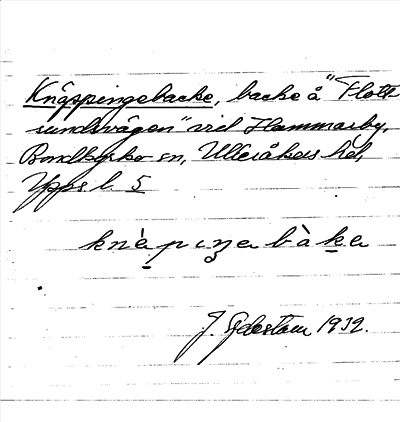 Knäppingebacke, backe å "Flott-
sundsvägen" vid Hammarby,
Bondkyrko sn, Ulleråkers hd,
Upps. l. 5
knäpiŋebàka
J. 1932.